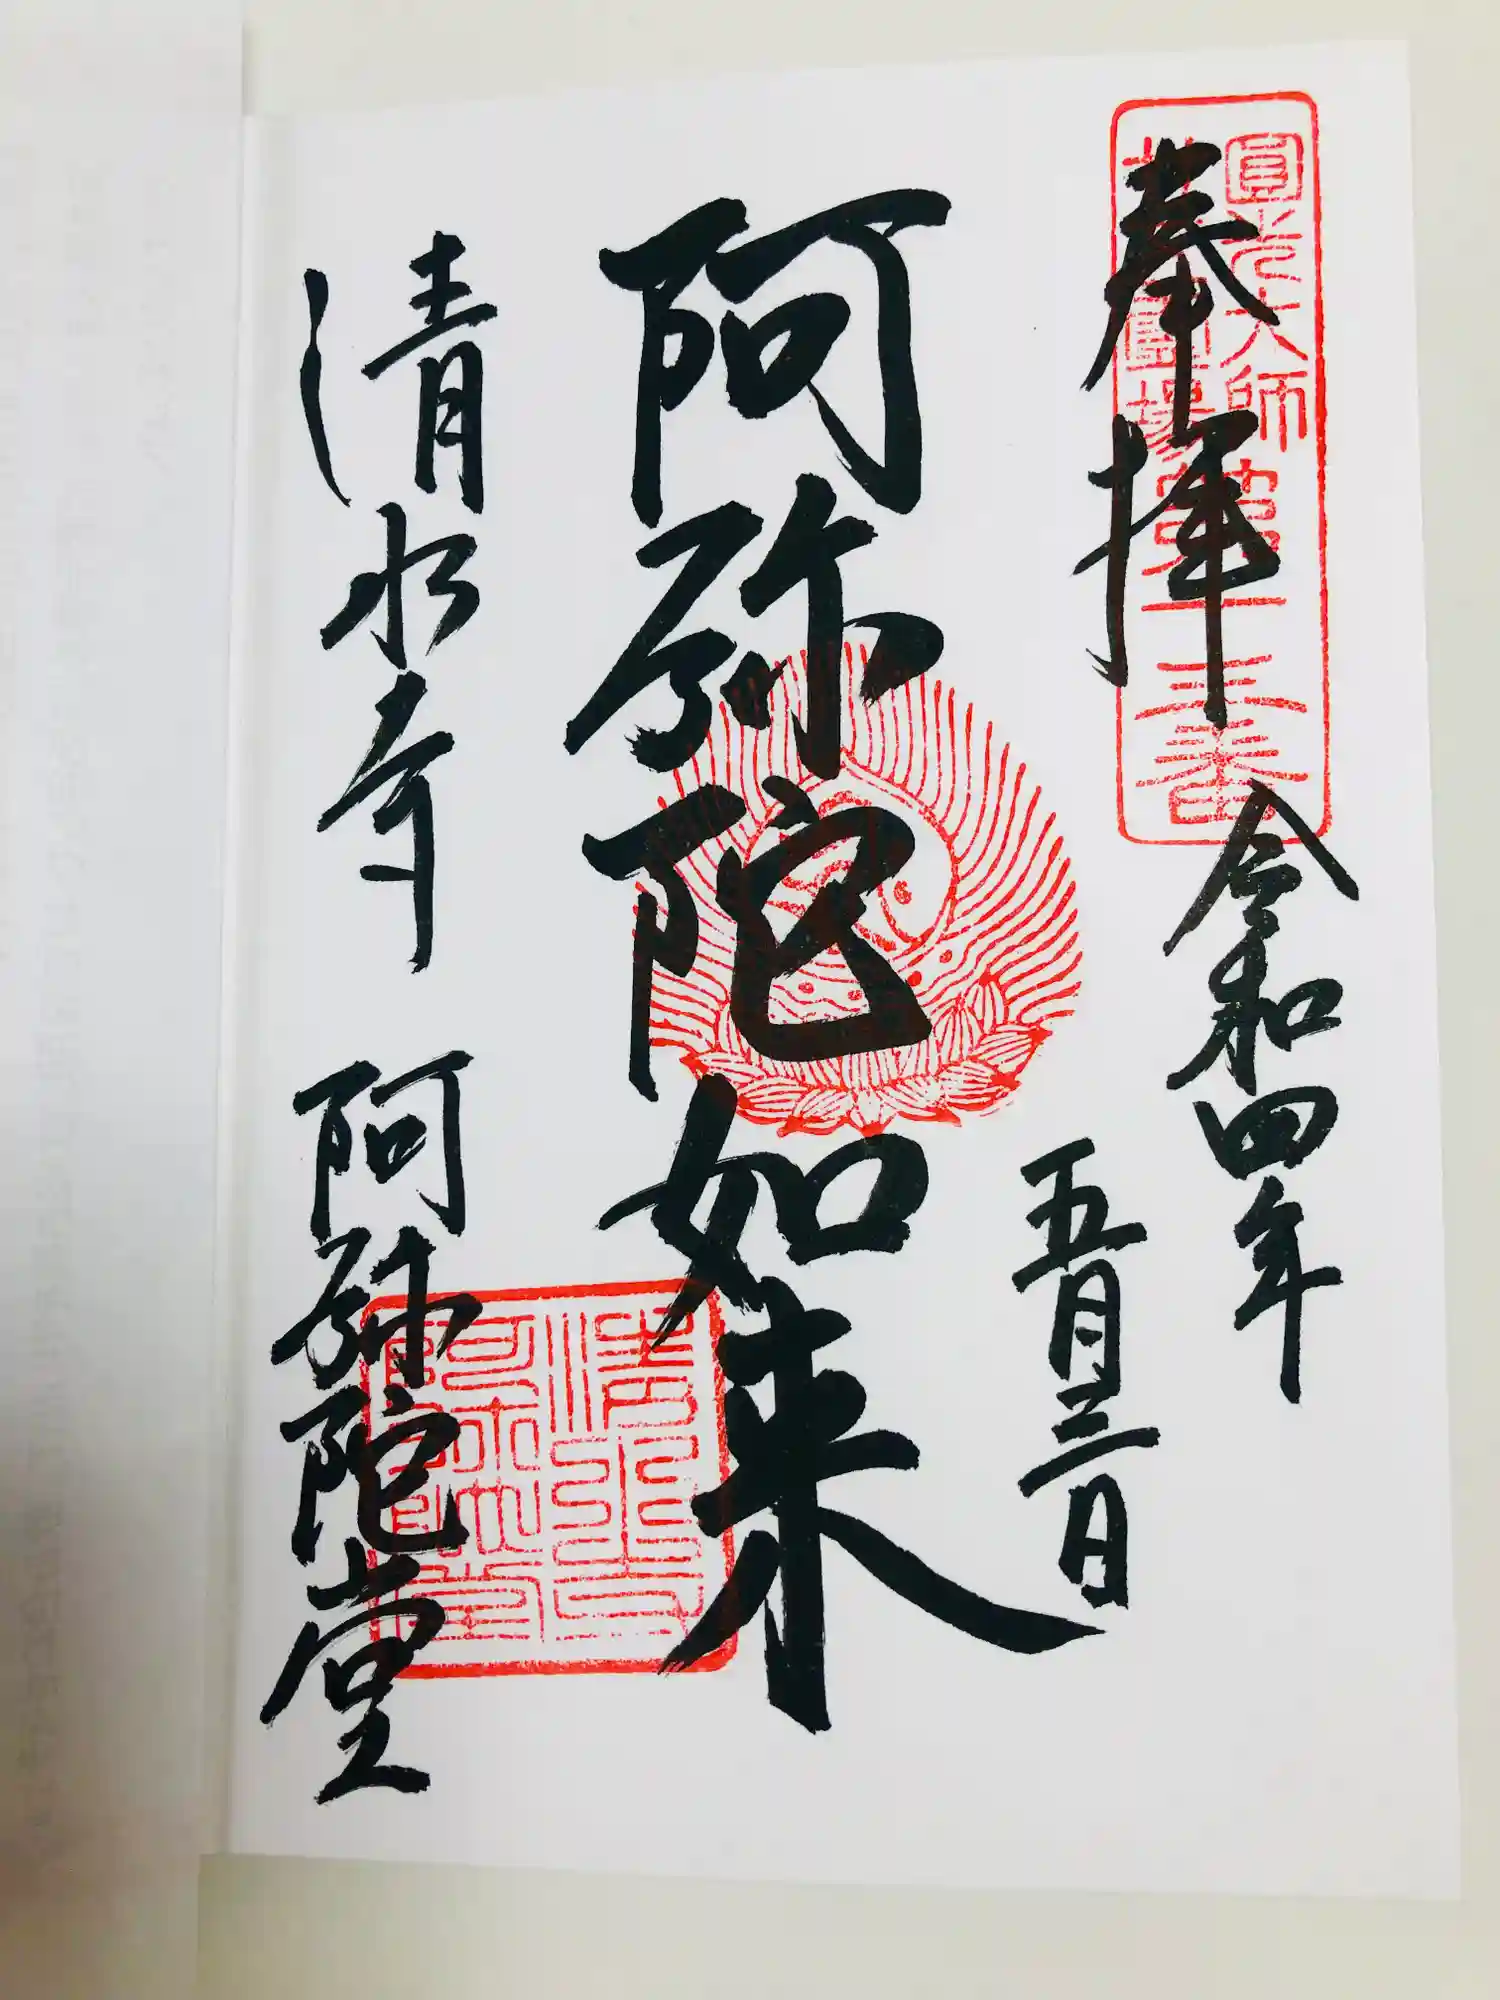 奉拝
圓光大師
霊場第十三番
令和四年
五月三日
阿弥陀如来
清水寺 阿弥陀堂
清水寺
阿弥陀堂